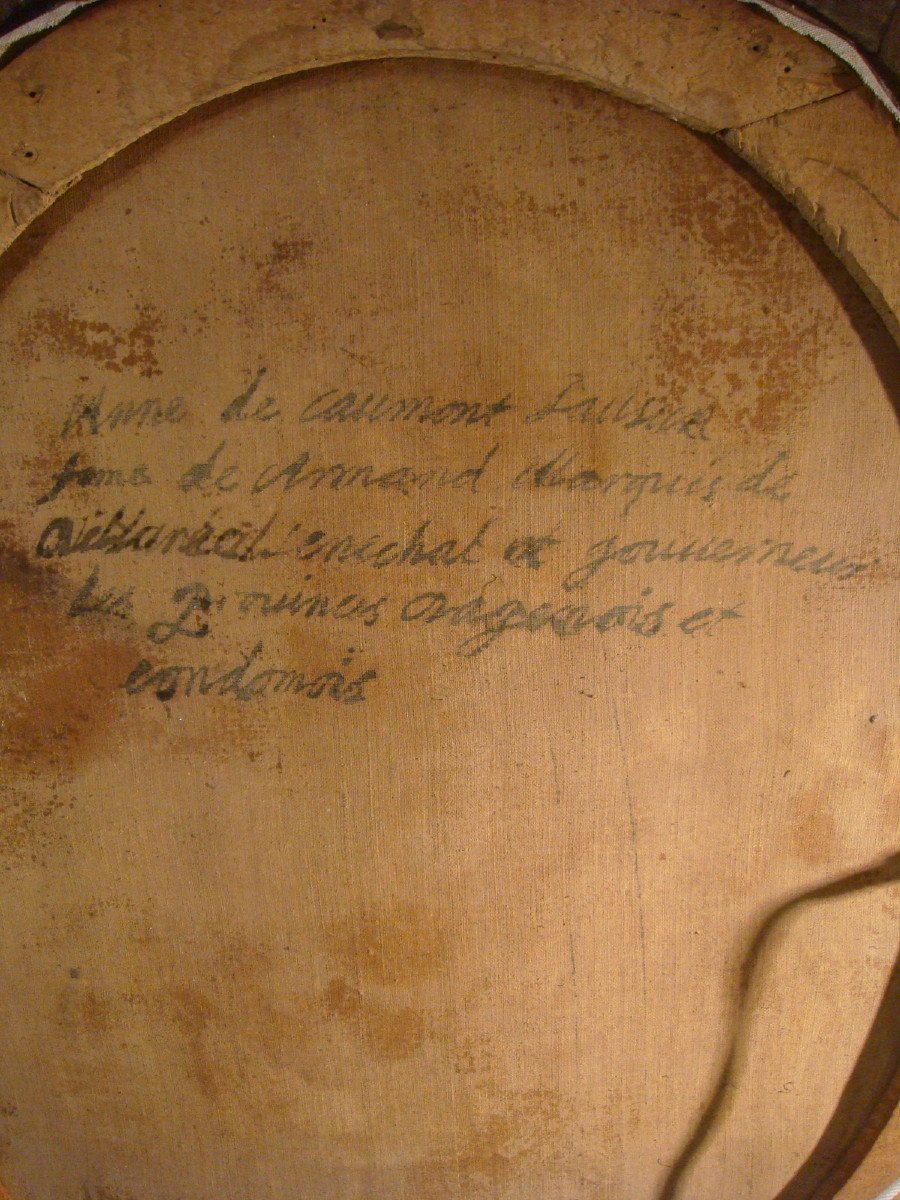 Anne de caumont Lauzun
fame de Armand Marquis de
et gouverneur
des Provinces Augenois et
condomois